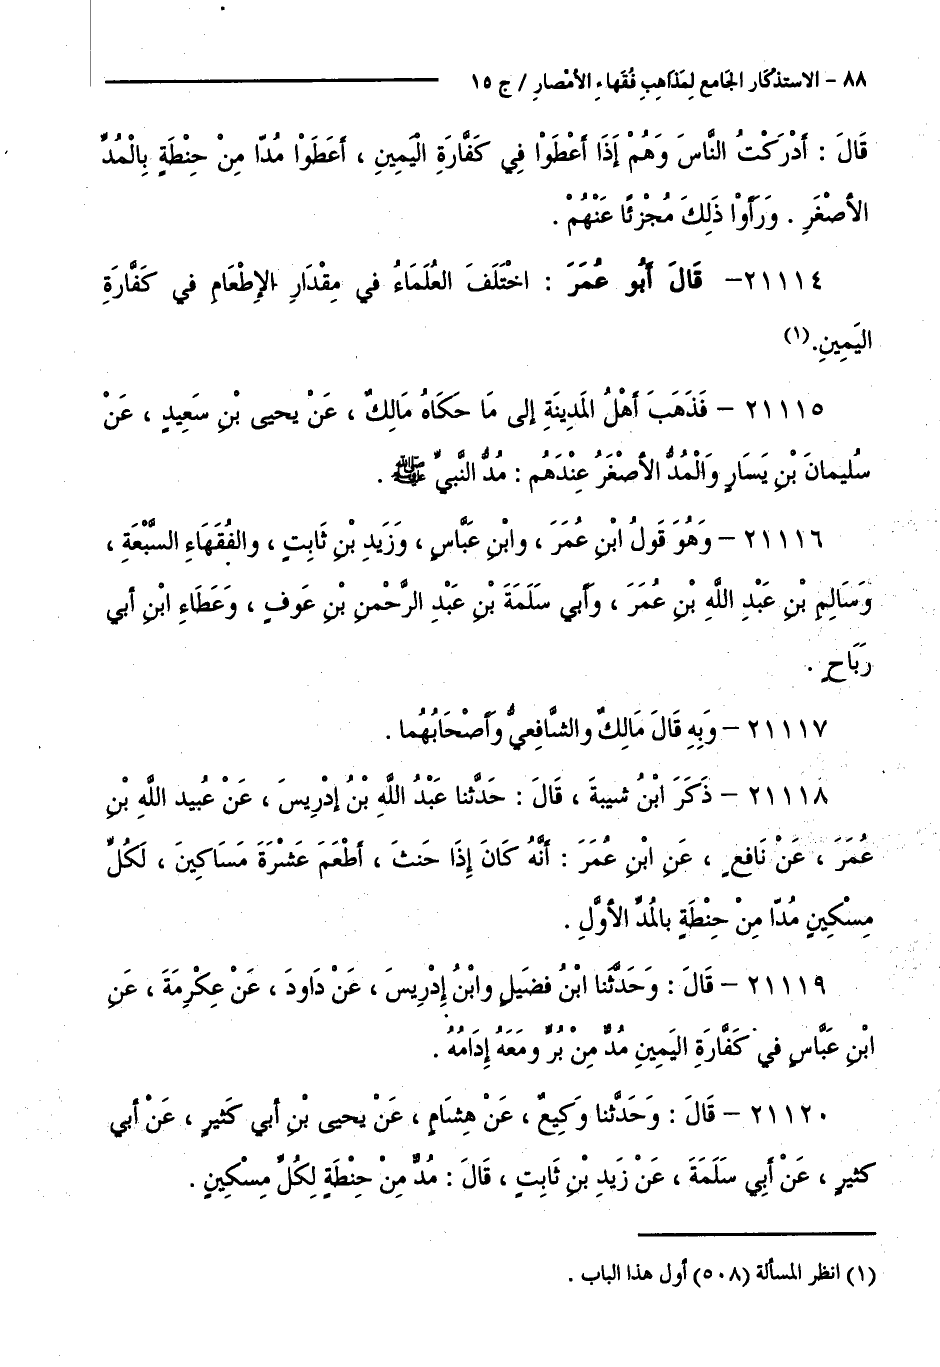 ٨٨ – الاستذكار الجامع لِمَذاهِبِ فُقَهاءِ الأمْصارِ / ج ١٥
قَالَ : أدْرَكْتُ النَّاسَ وَهُمْ إذَا أعْطَوْا فِي كَفَّارَةِ الْيَمِينِ ، أعَطَوْا مُدّا مِنْ حِنْطَةٍ بِالْمُدِّ
الأصْغَرِ . وَرَأوْا ذَلِكَ مُجْزئًا عَنْهُمْ .
٢١١١٤– قَالَ أَبُو عُمَرَ : اخْتَلَفَ العُلَمَاءُ في مِقْدَارِ الإطْعَامِ في كَفَّارَةِ
اليَمِينِ.(١)
٢١١١٥ – فَذَهَبَ أهْلُ المَدِينَةِ إلى مَا حَكَاهُ مَالِكٌ ، عَنْ يحيى بْنِ سَعِيدٍ ، عَنْ
سُليمانَ بْنِ يَسَارٍ وَالْمُدُّ الأصْغَرُ عِنْدَهُم : مُدُّ النَّبيِّ ﷺ .
٢١١١٦ – وَهُوَ قَولُ ابْنِ عُمَرَ ، وابْنِ عَبَّاسٍ ، وَزَيدِ بْنِ ثَابِتٍ ، والفُقَهَاءِ السَّبْعَةِ ،
وَسَالِمِ بْنِ عَبْدِ اللَّهِ بْنِ عُمَرَ ، وأَبي سَلَمَةَ بْنِ عَبْدِ الرَّحْمنِ بْنِ عَوفٍ ، وَعَطَاءِ ابْنِ أبي
رَبَاحٍ .
٢١١١٧ – وَبِهِ قَالَ مَالِكٌ والشَّافِعيُّ وَأَصْحَابُهُما .
٢١١١٨ – ذَكَرَ ابْنُ شيبةَ ، قَالَ : حَدَّثنا عَبْدُ اللَّهِ بْنُ إدْرِيسَ ، عَنْ عُبيد اللَّهِ بْنِ
عُمَرَ ، عَنْ نَافعٍ ، عَنِ ابْنِ عُمَرَ : أنَّهُ كَانَ إِذَا حَنثَ ، أطْعَمَ عَشْرَةَ مَسَاكِينَ ، لَكُلِّ
مِسْكِينٍ مُدّا مِنْ حِنْطَةٍ بالمُدِّ الأوَّلِ .
٢١١١٩ – قَالَ : وَحَدَّثَنا ابْنُ فضَيلٍ وابْنُ إدْرِيسَ ، عَنْ دَاودَ ، عَنْ عِكْرِمَةَ ، عَنِ
ابْنِ عَبَّاسٍ في كَفَّارَةِ اليَمِينِ مُدٌّ مِنْ بُرٍّ ومَعَهُ إدَامُهُ .
٢١١٢٠ – قَالَ : وَحَدَّثنا وَكيعٌ ، عَنْ هِشَامٍ ، عَنْ يحيى بْنِ أبي كَثيرٍ ، عَنْ أبي
كثيرٍ ، عَنْ أَبِي سَلَمَةَ ، عَنْ زَيدِ بْنِ ثَابتٍ ، قَالَ : مُدٌّ مِنْ حِنْطَةٍ لِكُلِّ مِسْكِينٍ .
(١) انظر المسألة (٥٠٨) أول هذا الباب .